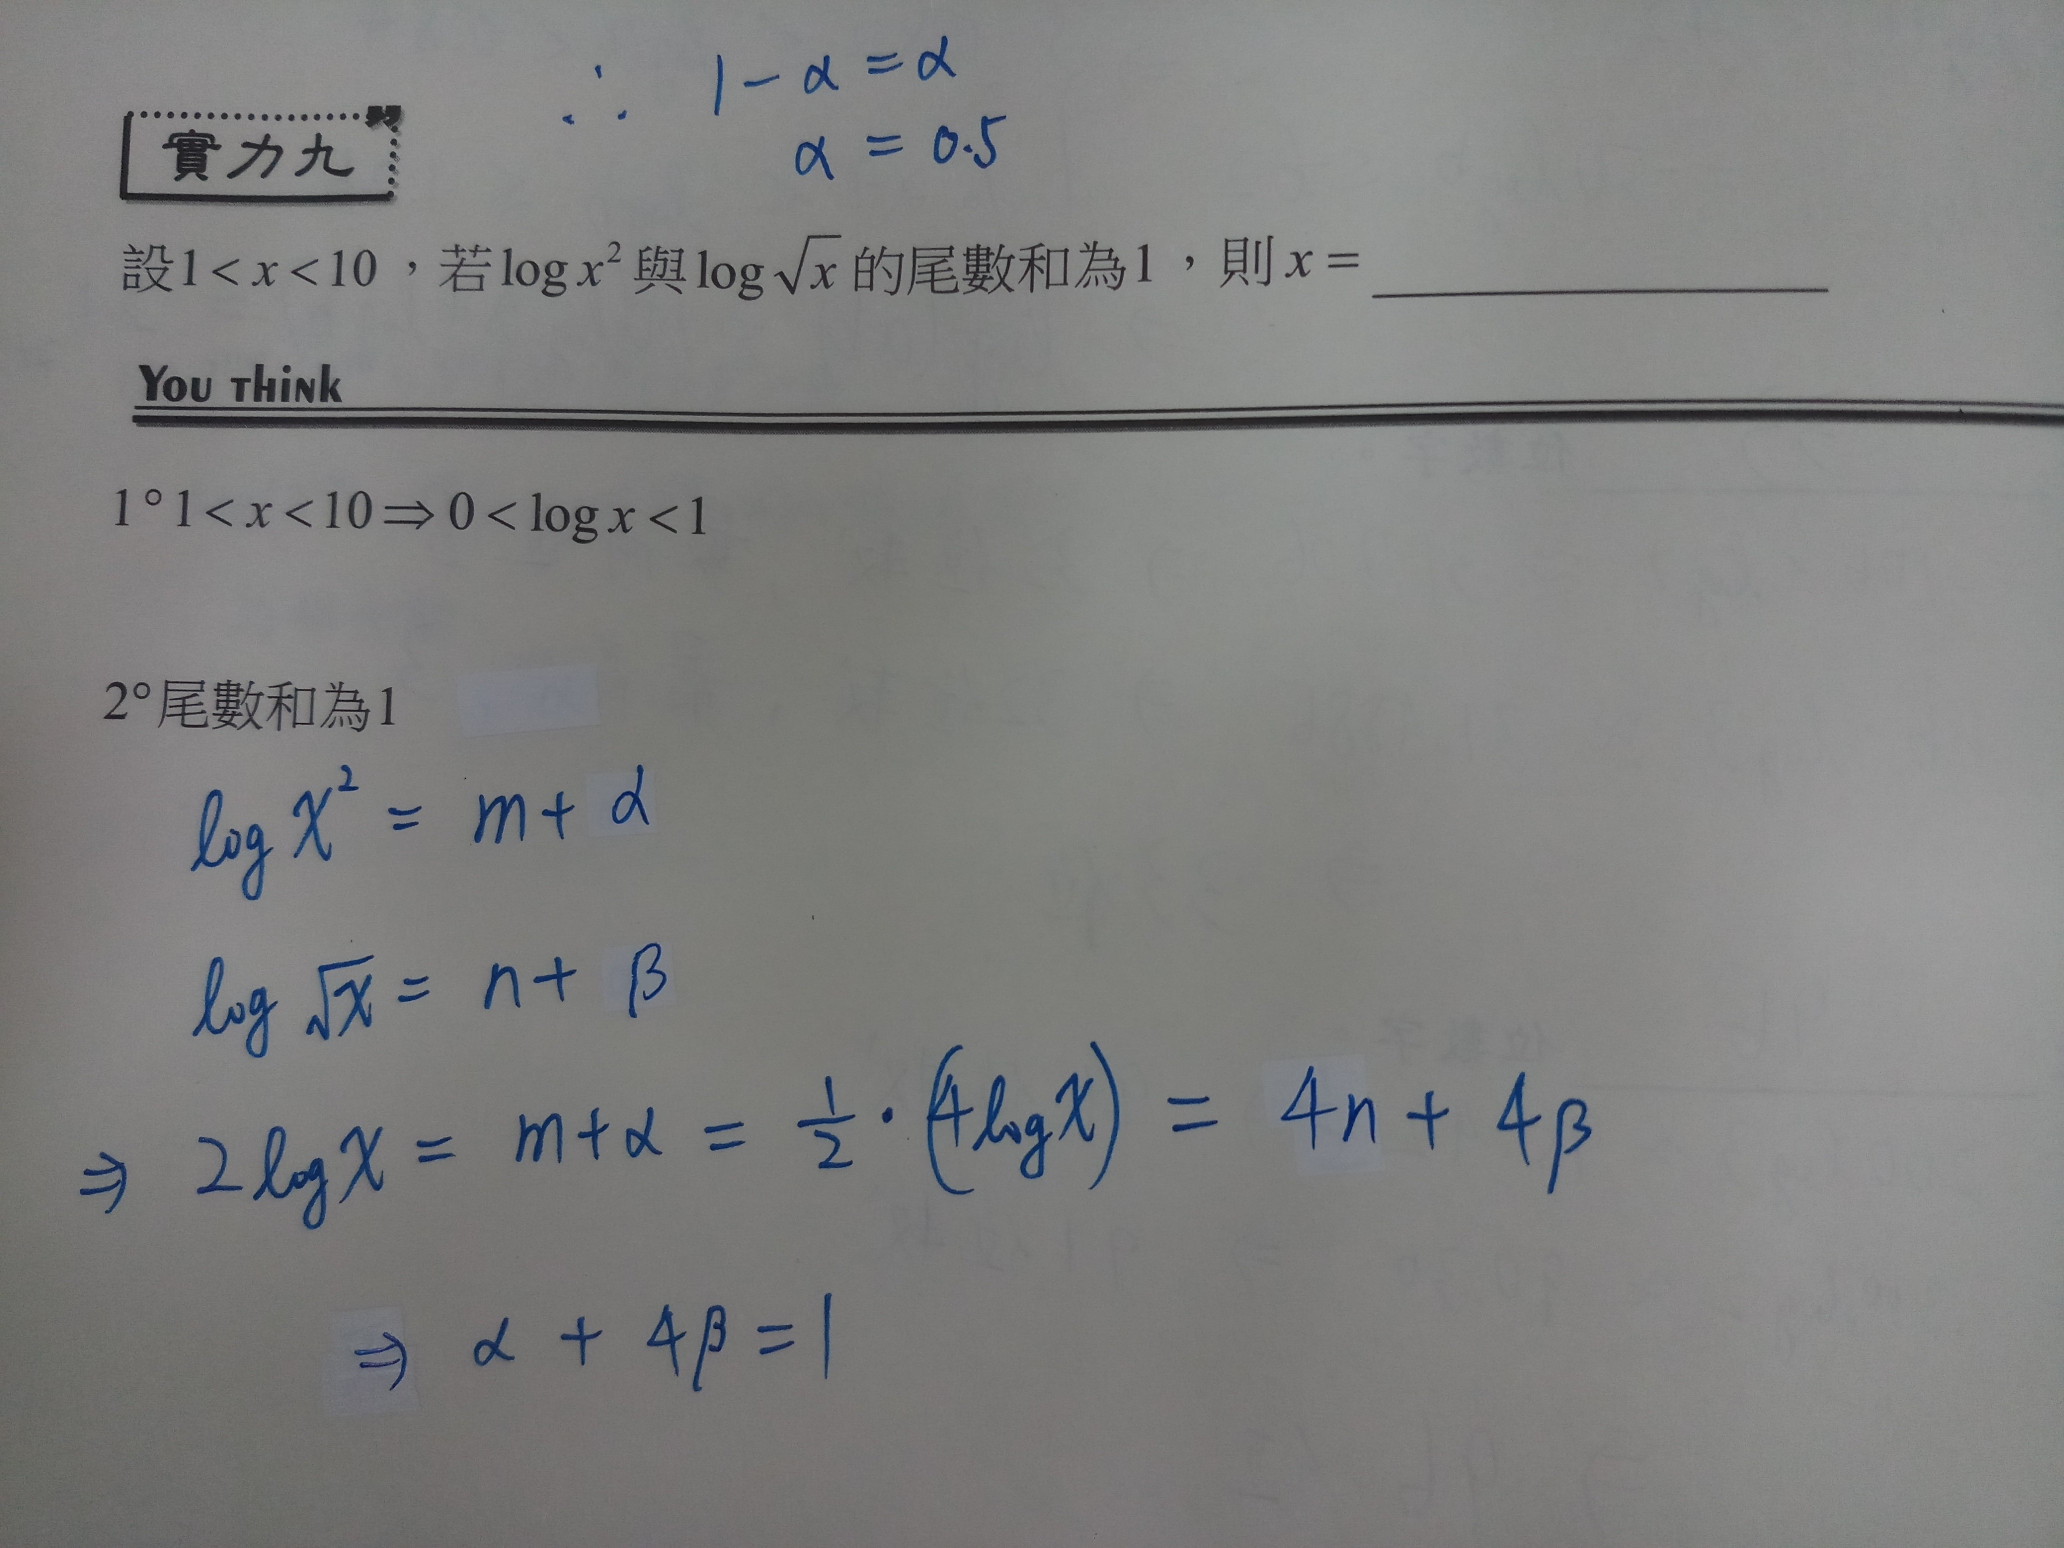 ∴ 1 − α = α
α = 0.5
實力九
設1 < x < 10，若 log x² 與 log √x 的尾數和為1，則 x = ________
You Think
1° 1 < x < 10 ⇒ 0 < log x < 1
2° 尾數和為1
log x² = m + α
log √x = n + β
⇒ 2 log x = m + α = 1/2 · (4 log x) = 4n + 4β
⇒ α + 4β = 1